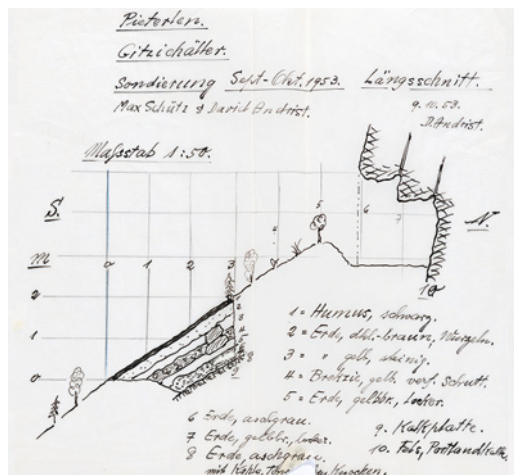 Pieterlen.
Gitzichälter.
Sondierung Sept-Okt. 1953.
Max Schütz & David Andrist.
Längsschnitt.
9.10.53
D. Andrist.
Maßstab 1:50.
S.
N.
m
0 1 2 3 4 5 6 7
10
2
1
0
1 = Humus, schwarz.
2 = Erde, dkl.-braun, Wurzeln.
3 = " gelb, steinig.
4 = Brekzie, gelb. verf. Schutt.
5 = Erde, gelbbr., locker.
6 Erde, aschgrau.
7 Erde, gelbbr., locker.
8 Erde, aschgrau.
9. Kalkplatte.
10. Fels, Portlandkalk.
mit Knochen.